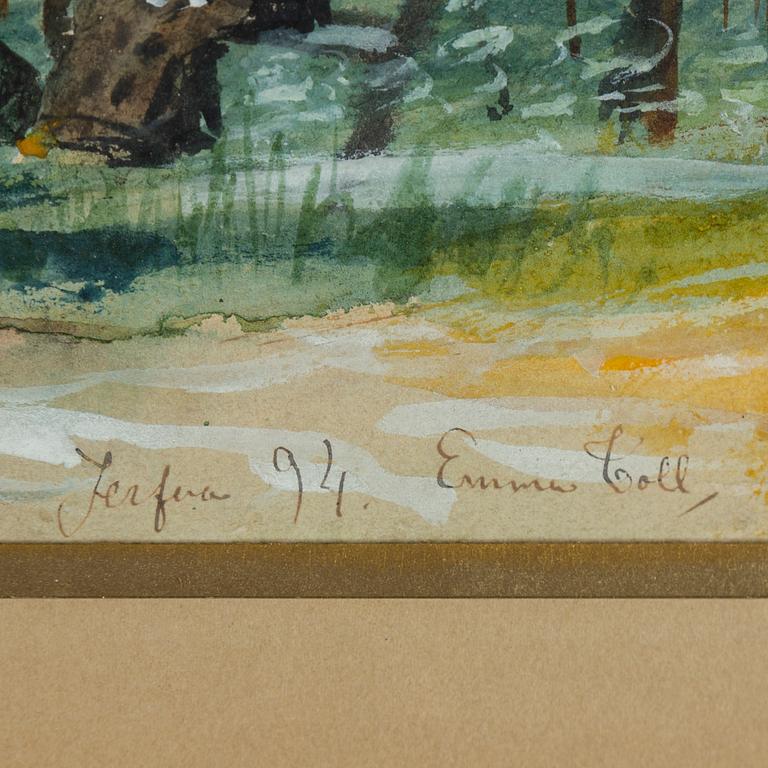 Jerfva 94. Emma Toll,